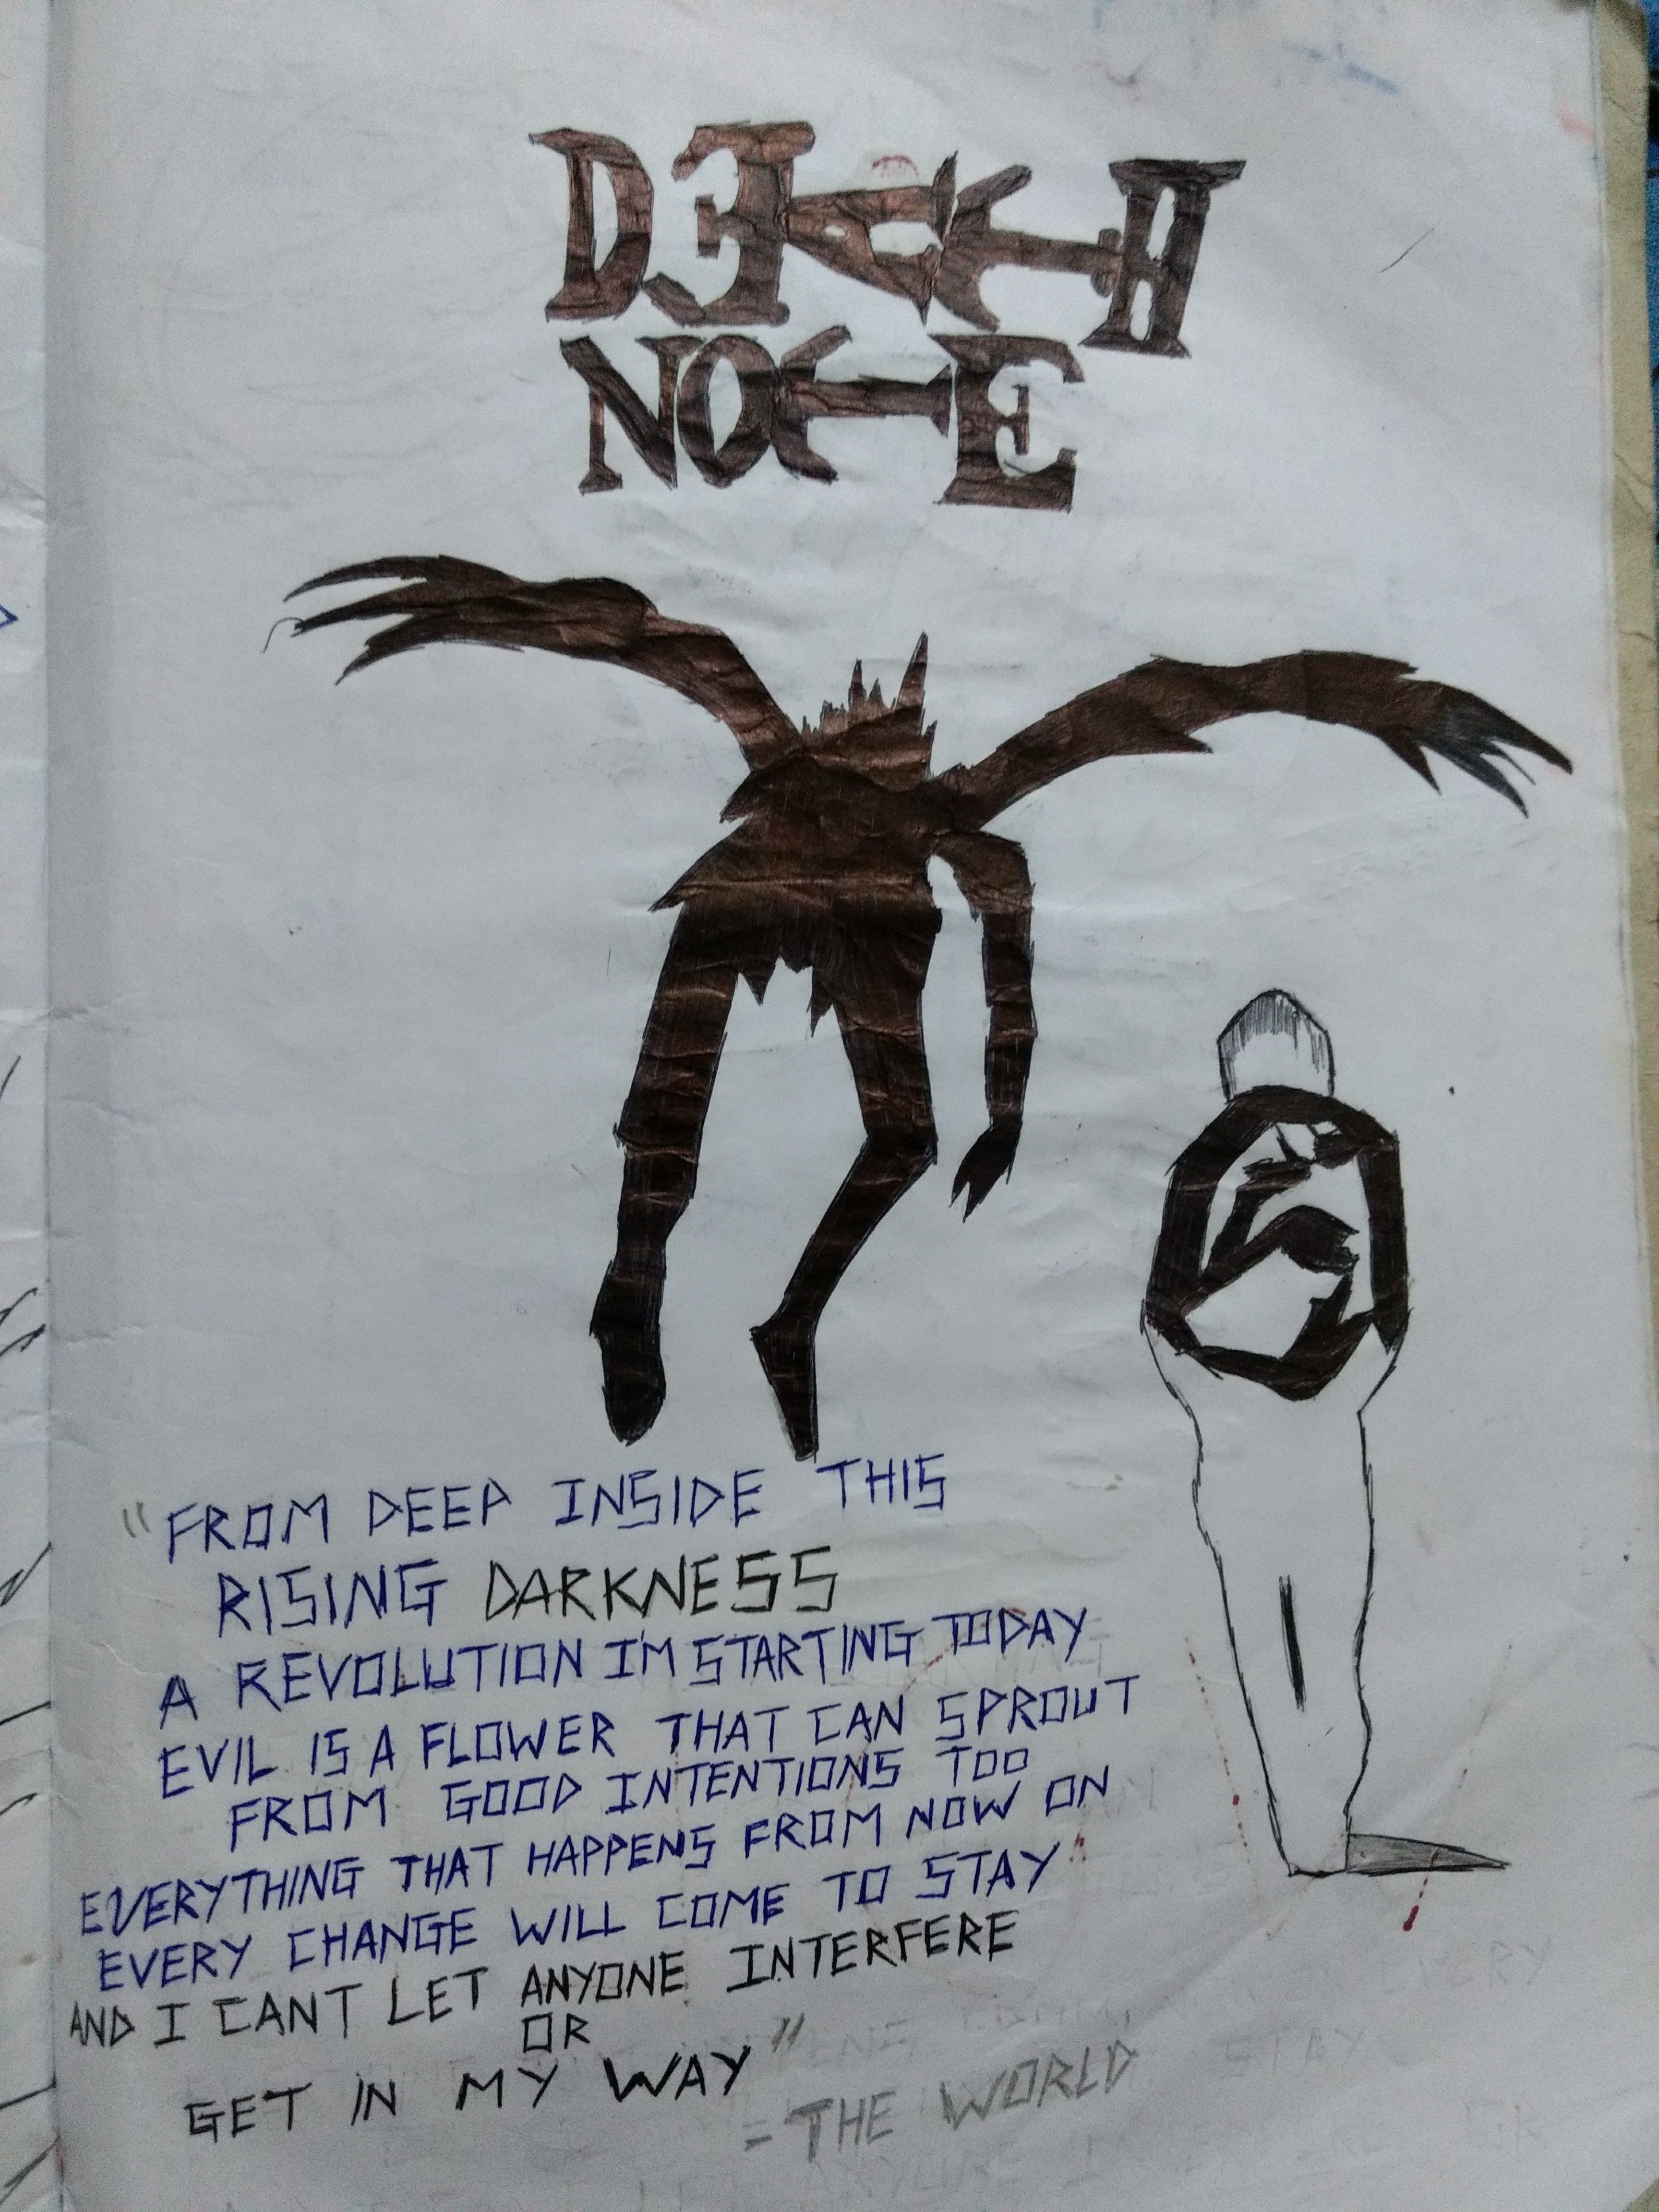 DEATH
NOTE
"FROM DEEP INSIDE THIS
RISING DARKNESS
A REVOLUTION I'M STARTING TODAY
EVIL IS A FLOWER THAT CAN SPROUT
FROM GOOD INTENTIONS TOO
EVERYTHING THAT HAPPENS FROM NOW ON
EVERY CHANGE WILL COME TO STAY
AND I CANT LET ANYONE INTERFERE
OR
GET IN MY WAY"
- THE WORLD